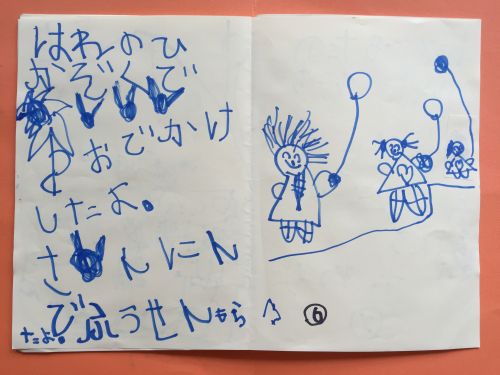 はれのひ
かぞくで
おでかけ
したよ。
さんにん
でふうせんもらっ
たよ。
6